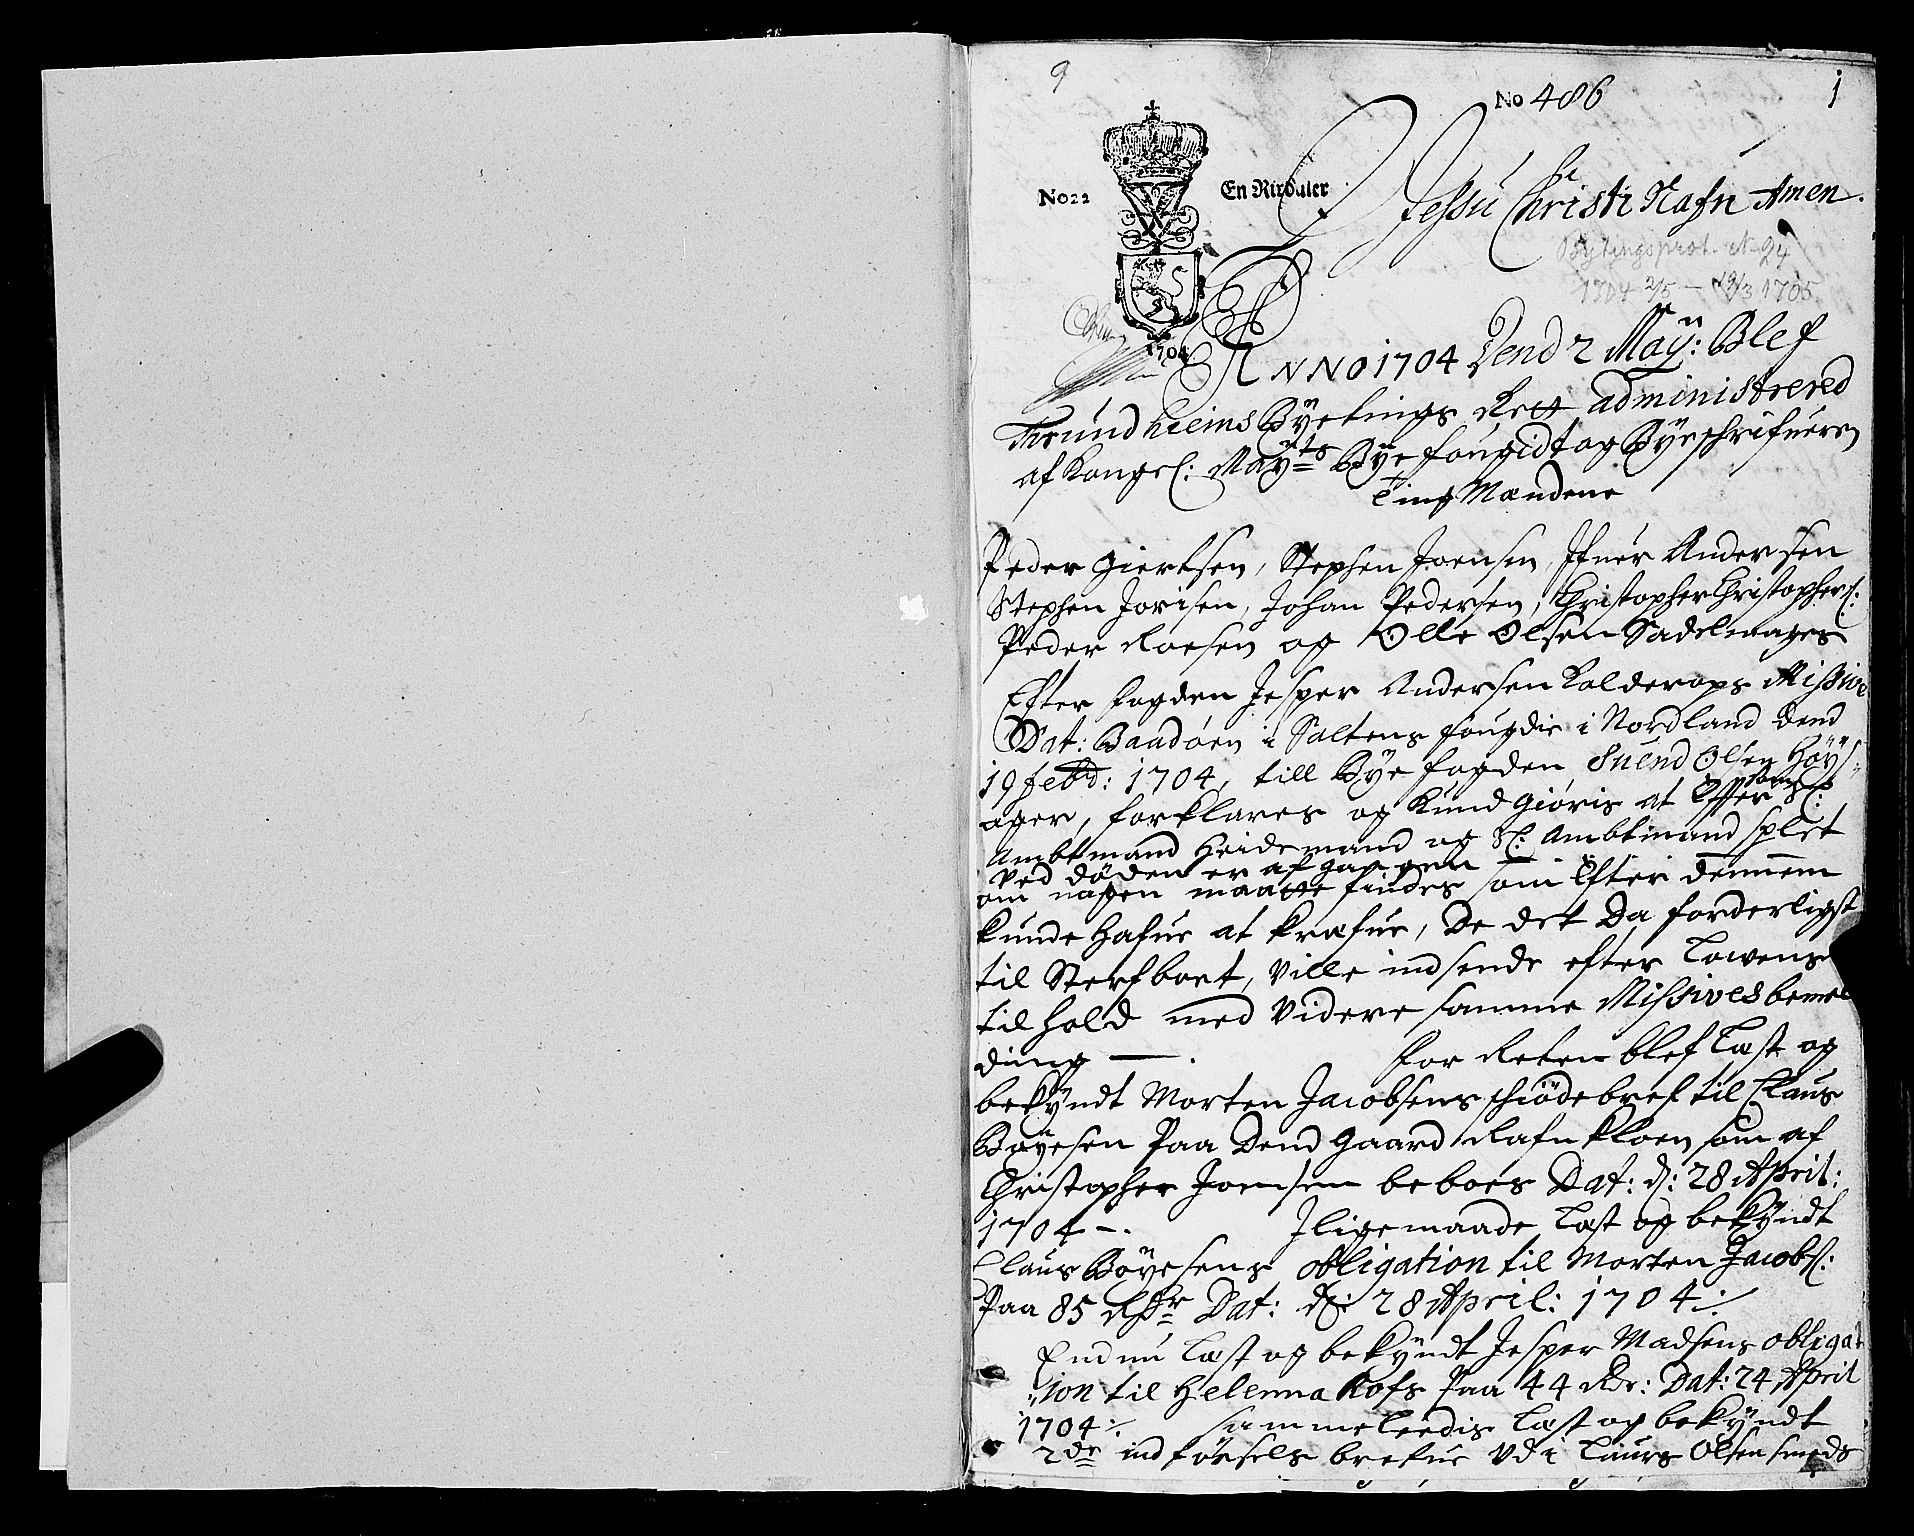 9
No 486
1
No 22
En Rixdaler
J Jessu Christi Nafn Amen.
Bytingsprot. 24
1704 2/5 — 13/3 1705
1704
ANNO 1704 Dend 2 Maÿ: Blef
Trundhiems Byetings Rett administrered
af Kongel: Mayts Bye fougidt og Byeschrifueren
Ting Mændene
Peder Giertsen, Stephen Joensen, Ifuer Andersen
Stephen Jorisen, Johan Pedersen, Christopher Christophers:
Peder Roesen og Olle Olsen Sadelmager
Efter fogden Jesper Andersen Kolderops Missive
Dat: Baadøen i Saltens fougdie i Nordland Dend
19 febr: 1704, till Bye fogden Suend Olsen Høÿs-
ager, forklares og Kundgiøris at Efftersom Sl:
Ambtmand Heidemand og Sl: Ambtmand splet
ved døden er afgangen
om nogen maatte findes som Efter dennem
kunde hafue at kræfue, De det Da forderligst
til Sterfboet, ville indsende efter Lowens
tilhold med videre samme Missives bemel
ding —. For Reten blef Læst og
bekyndt Morten Jacobsens schiøde bref til Claus
Bøyesen Paa Dend gaard Rafnkloen som af
Christopher Joensen beboes Dat: d: 28 April:
1704 —. Iligemaade Læst og bekyndt
Claus Bøyesens obligation til Morten Jacobs:
Paa 85 Rdr Dat: d: 28 April: 1704 ⁒
Endnu Læst og bekyndt Jesper Madsens obligat
ion til Helenna Kofs Paa 44 Rdr: Dat: 24 April
1704 ⁒ sammeleedis Læst og bekyndt
2de indførsels brefue Udi Laurs Olsen smeds